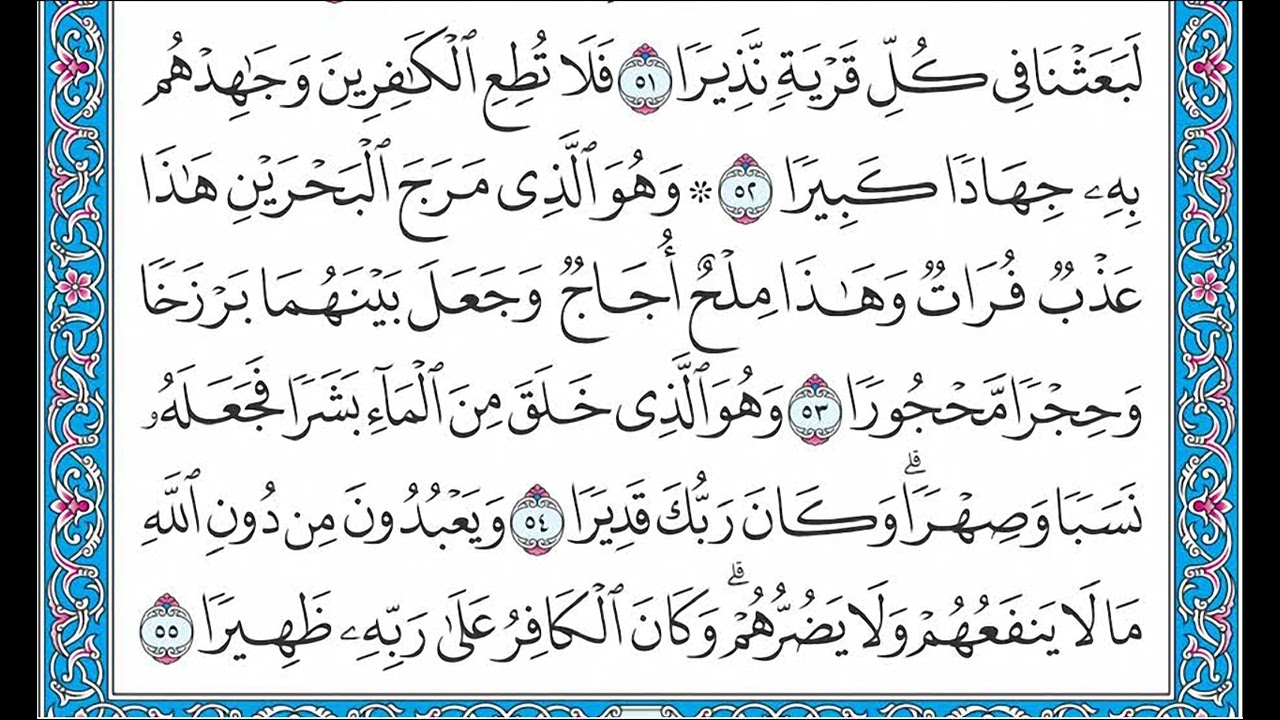 لَبَعَثْنَا فِى كُلِّ قَرْيَةٍ نَّذِيرًا ٥١ فَلَا تُطِعِ ٱلْكَٰفِرِينَ وَجَٰهِدْهُم
بِهِۦ جِهَادًا كَبِيرًا ٥٢ ۞ وَهُوَ ٱلَّذِى مَرَجَ ٱلْبَحْرَيْنِ هَٰذَا
عَذْبٌ فُرَاتٌ وَهَٰذَا مِلْحٌ أُجَاجٌ وَجَعَلَ بَيْنَهُمَا بَرْزَخًا
وَحِجْرًا مَّحْجُورًا ٥٣ وَهُوَ ٱلَّذِى خَلَقَ مِنَ ٱلْمَآءِ بَشَرًا فَجَعَلَهُۥ
نَسَبًا وَصِهْرًا ۗ وَكَانَ رَبُّكَ قَدِيرًا ٥٤ وَيَعْبُدُونَ مِن دُونِ ٱللَّهِ
مَا لَا يَنفَعُهُمْ وَلَا يَضُرُّهُمْ ۗ وَكَانَ ٱلْكَافِرُ عَلَىٰ رَبِّهِۦ ظَهِيرًا ٥٥